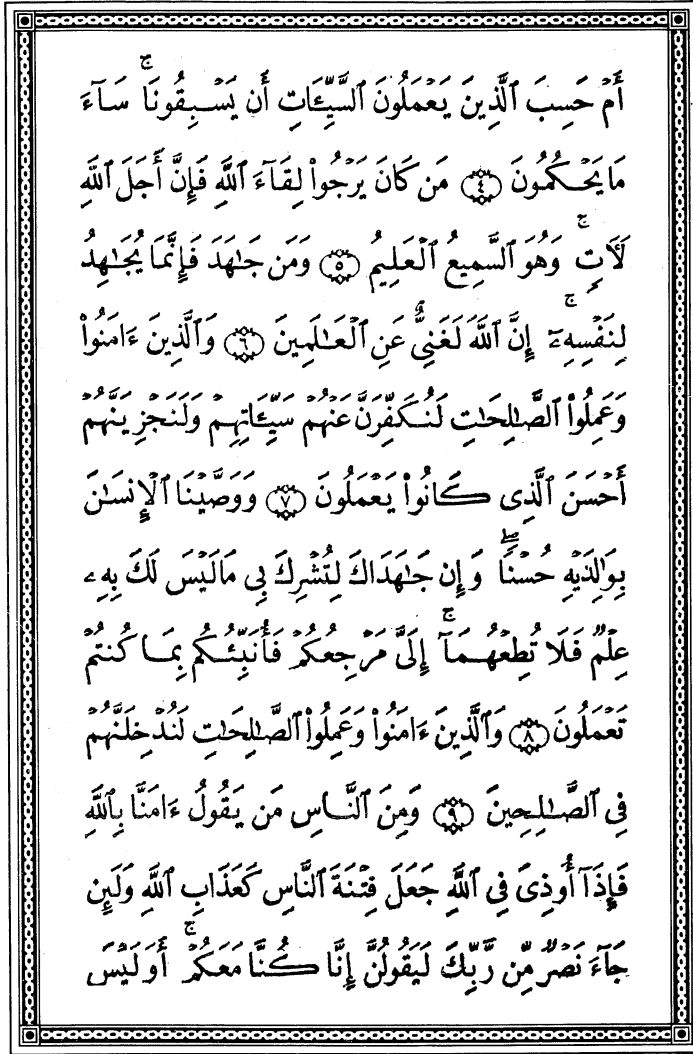 أَمۡ حَسِبَ ٱلَّذِينَ يَعۡمَلُونَ ٱلسَّيِّـَٔاتِ أَن يَسۡبِقُونَاۚ سَآءَ
مَا يَحۡكُمُونَ ٤ مَن كَانَ يَرۡجُواْ لِقَآءَ ٱللَّهِ فَإِنَّ أَجَلَ ٱللَّهِ
لَأٓتٖۚ وَهُوَ ٱلسَّمِيعُ ٱلۡعَلِيمُ ٥ وَمَن جَٰهَدَ فَإِنَّمَا يُجَٰهِدُ
لِنَفۡسِهِۦٓۚ إِنَّ ٱللَّهَ لَغَنِيٌّ عَنِ ٱلۡعَٰلَمِينَ ٦ وَٱلَّذِينَ ءَامَنُواْ
وَعَمِلُواْ ٱلصَّٰلِحَٰتِ لَنُكَفِّرَنَّ عَنۡهُمۡ سَيِّـَٔاتِهِمۡ وَلَنَجۡزِيَنَّهُمۡ
أَحۡسَنَ ٱلَّذِي كَانُواْ يَعۡمَلُونَ ٧ وَوَصَّيۡنَا ٱلۡإِنسَٰنَ
بِوَٰلِدَيۡهِ حُسۡنٗاۖ وَإِن جَٰهَدَاكَ لِتُشۡرِكَ بِي مَا لَيۡسَ لَكَ بِهِۦ
عِلۡمٞ فَلَا تُطِعۡهُمَآۚ إِلَيَّ مَرۡجِعُكُمۡ فَأُنَبِّئُكُم بِمَا كُنتُمۡ
تَعۡمَلُونَ ٨ وَٱلَّذِينَ ءَامَنُواْ وَعَمِلُواْ ٱلصَّٰلِحَٰتِ لَنُدۡخِلَنَّهُمۡ
فِي ٱلصَّٰلِحِينَ ٩ وَمِنَ ٱلنَّاسِ مَن يَقُولُ ءَامَنَّا بِٱللَّهِ
فَإِذَآ أُوذِيَ فِي ٱللَّهِ جَعَلَ فِتۡنَةَ ٱلنَّاسِ كَعَذَابِ ٱللَّهِ وَلَئِن
جَآءَ نَصۡرٞ مِّن رَّبِّكَ لَيَقُولُنَّ إِنَّا كُنَّا مَعَكُمۡۚ أَوَلَيۡسَ